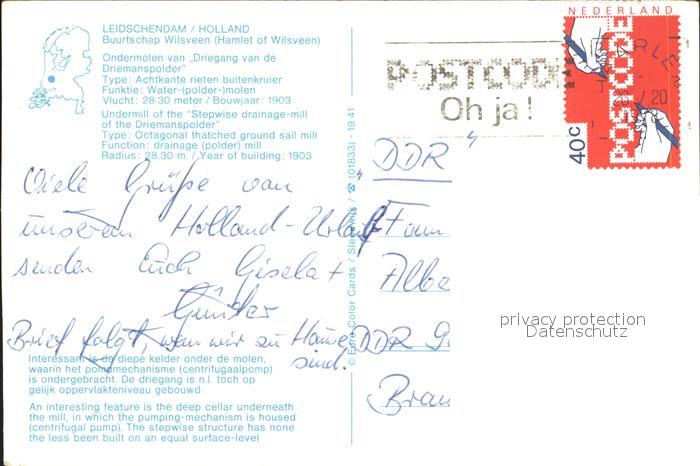 LEIDSCHENDAM / HOLLAND
Buurtschap Wilsveen (Hamlet of Wilsveen)
Ondermolen van „Driegang van de
Driemanspolder"
Type: Achtkante rieten buitenkruier
Funktie: Water-(polder-)molen
Vlucht: 28.30 meter / Bouwjaar: 1903
Undermill of the "Stepwise drainage-mill
of the Driemanspolder"
Type: Octagonal thatched ground sail mill
Function: drainage (polder) mill
Radius: 28.30 m. / Year of building: 1903
Viele Grüße von
unserem Holland-Urlaub
senden Euch Gisela +
Günter
Brief folgt, wenn wir zu Hause
sind.
Interessant is de diepe kelder onder de molen,
waarin het pompmechanisme (centrifugaalpomp)
is ondergebracht. De driegang is n.l. toch op
gelijk oppervlakteniveau gebouwd
An interesting feature is the deep cellar underneath
the mill, in which the pumping-mechanism is housed
(centrifugal pump). The stepwise structure has none
the less been built on an equal surface-level
© Euro Color Cards / ☎ (01833) - 19 41
NEDERLAND
POSTCODE
40c
POSTCODE
Oh ja!
„DDR"
Fam
Albe
DDR 9
Bran
privacy protection
Datenschutz